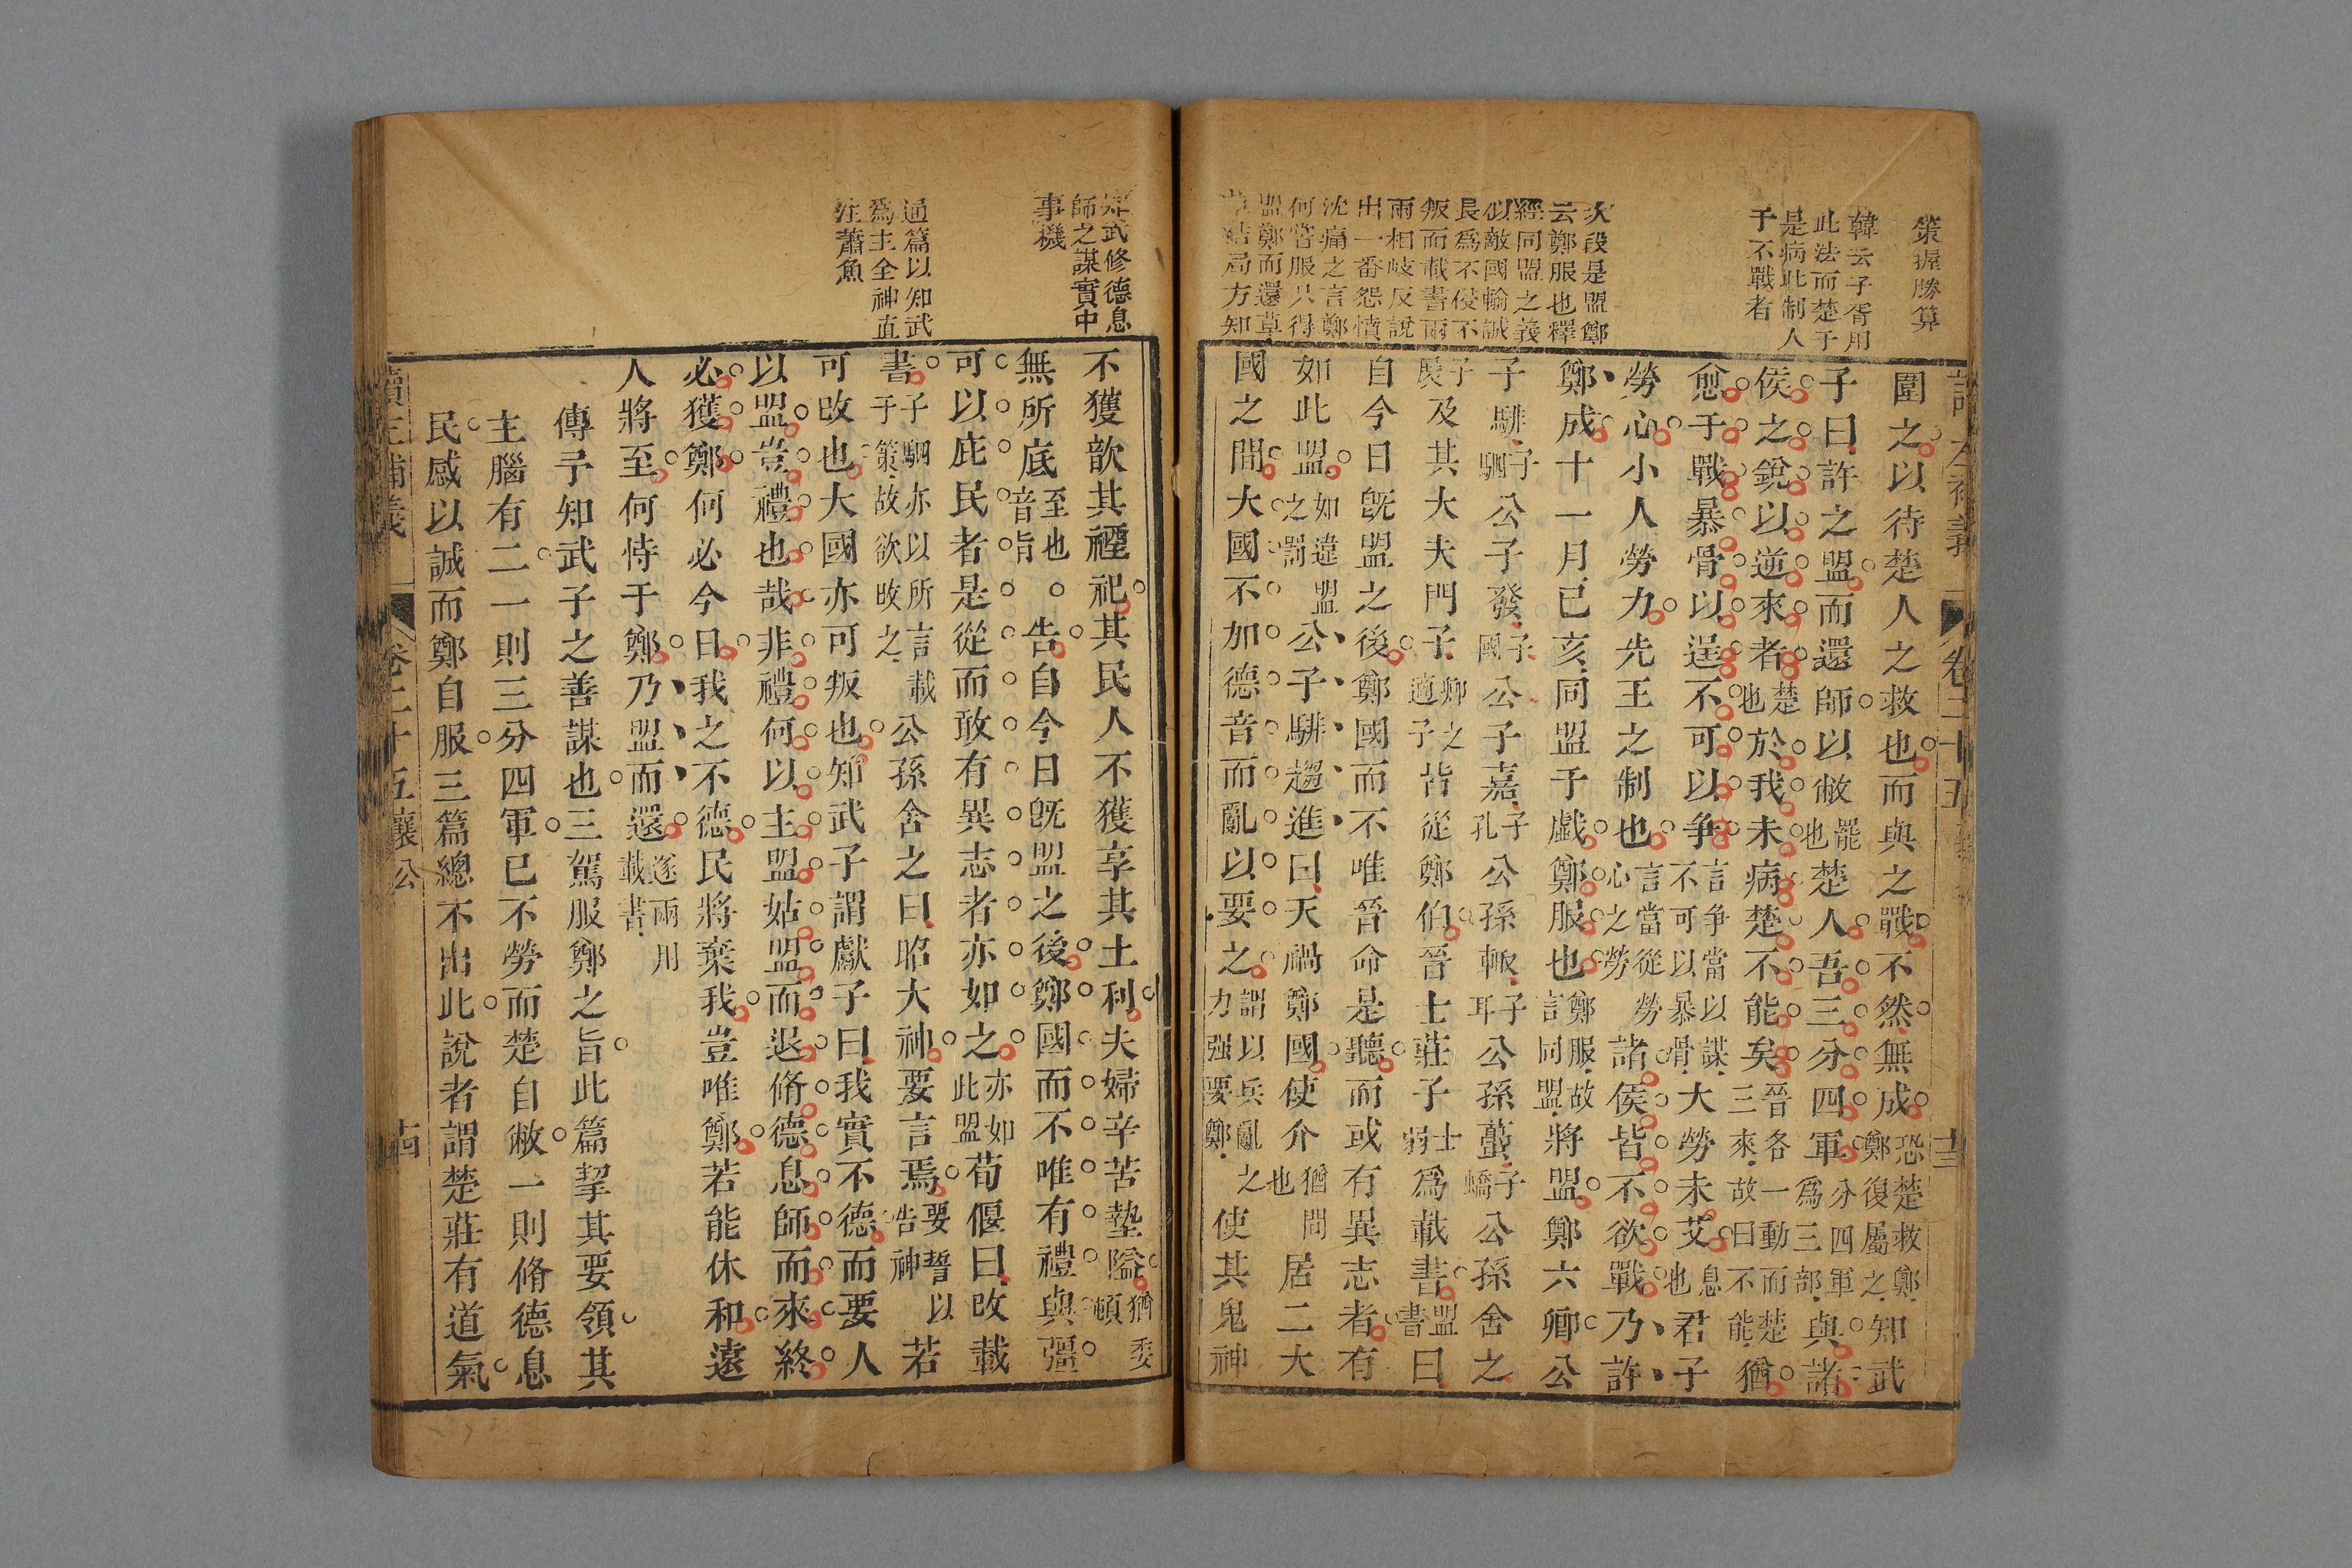 策握勝算
韓云子胥用
此法而楚子
是病此制人
于不戰者
次段是盟鄭
云鄭服也釋
經同盟之義
似敵國輸誠
長爲不侵不
叛而載書兩
兩相岐反說
出一番怨憤
沈痛之言鄭
何嘗服只得
盟鄭而還草
草結局方知
卷三十五
十三
圍之以待楚人之救也而與之戰不然無成恐楚救鄭鄭復屬之知武
子曰許之盟而還師以敝罷也楚人吾三分四軍分四軍爲三部與諸
侯之銳以逆來者楚也於我未病楚不能矣晉各一動而楚三來故曰不能猶
愈于戰暴骨以逞不可以爭言爭當以謀不可以暴骨大勞未艾息也君子
勞心小人勞力先王之制也言當從勞心之勞諸侯皆不欲戰乃許
鄭成十一月己亥同盟于戲鄭服也鄭服故言同盟將盟鄭六卿公
子騑子駟公子發子國公子嘉子孔公孫輒子耳公孫蠆子蟜公孫舍之
子展及其大夫門子卿之適子皆從鄭伯晉士莊子士弱爲載書盟書曰
自今日旣盟之後鄭國而不唯晉命是聽而或有異志者有
如此盟如違盟之罰公子騑趨進曰天禍鄭國使介猶間也居二大
國之間大國不加德音而亂以要之謂以兵亂之力强要鄭使其鬼神
知武修德息
師之謀實中
事機
通篇以知武
爲主全神直
注蕭魚
不獲歆其禋祀其民人不獲享其土利夫婦辛苦墊隘猶委頓
無所底至也音旨告自今日旣盟之後鄭國而不唯有禮與彊
可以庇民者是從而敢有異志者亦如之亦如此盟荀偃曰改載
書子駟亦以所言載于策故欲改之公孫舍之曰昭大神要言焉要誓以告神若
可改也大國亦可叛也知武子謂獻子曰我實不德而要人
以盟豈禮也哉非禮何以主盟姑盟而退脩德息師而來終
必獲鄭何必今日我之不德民將棄我豈唯鄭若能休和遠
人將至何恃于鄭乃盟而還遂兩用載書
傳予知武子之善謀也三駕服鄭之旨此篇挈其要領其
主腦有二一則三分四軍已不勞而楚自敝一則脩德息
民感以誠而鄭自服三篇總不出此說者謂楚莊有道氣
讀左補義
卷三十五襄公
十四